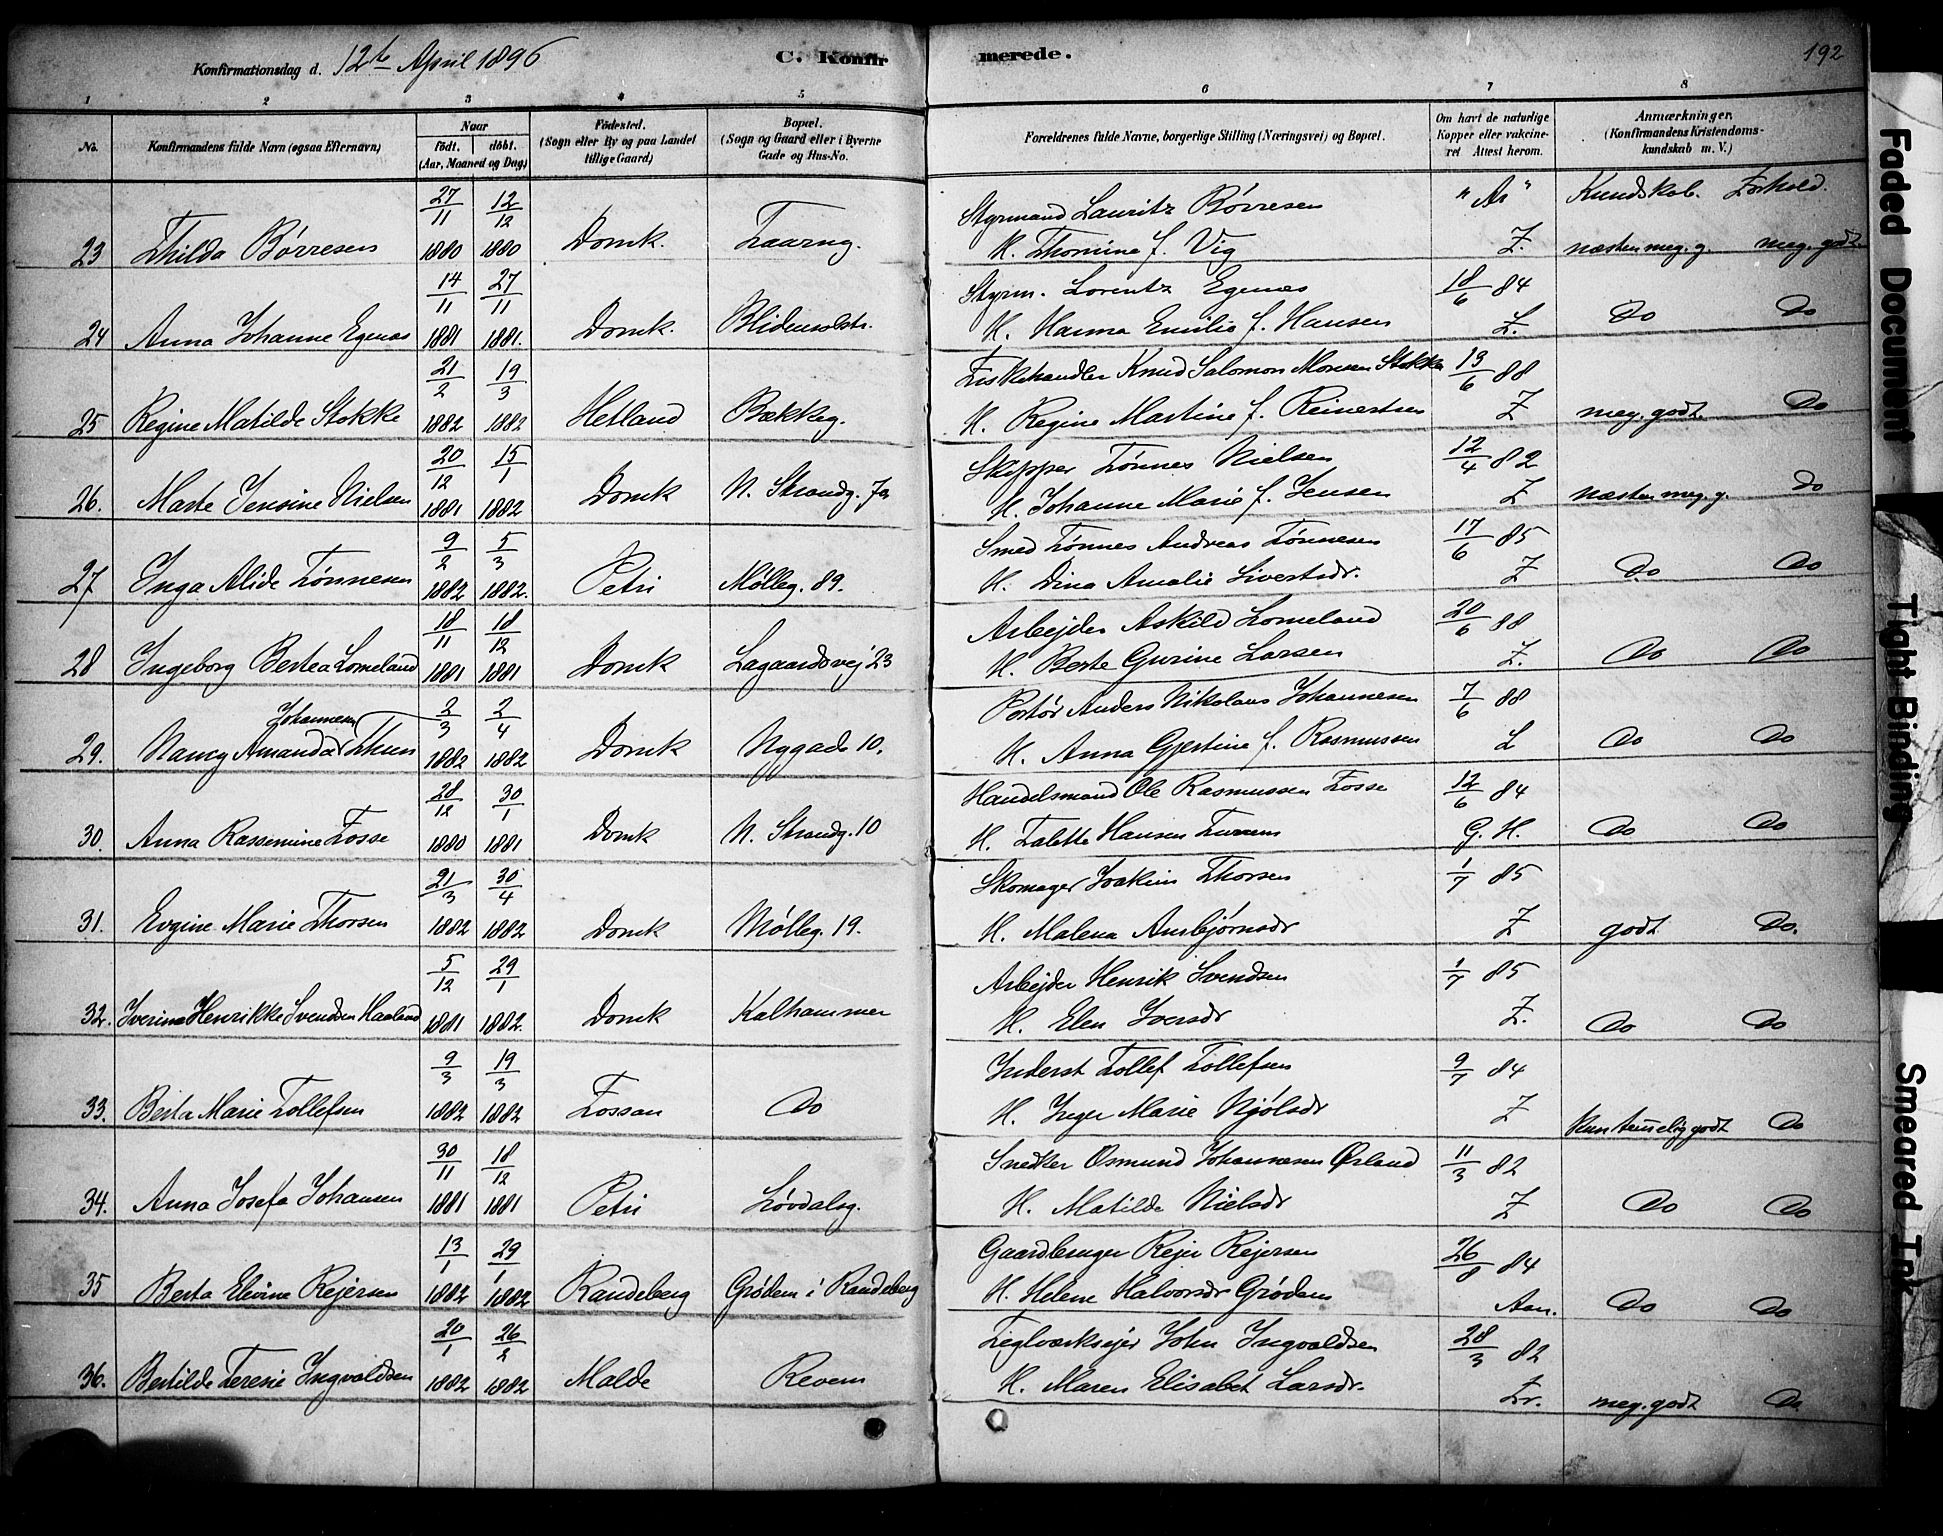 Konfirmationsdag d. 12te April 1896 C. Konfirmerede. 192
1 2 3 4 5 6 7 8
No. Konfirmandens fulde Navn (ogsaa Efternavn) Naar født. døbt. (Aar, Maaned og Dag) Fødested. (Sogn eller By og paa Landet tillige Gaard) Bopæl. (Sogn og Gaard eller i Byerne Gade og Hus-No. Forældrenes fulde Navne, borgerlige Stilling (Næringsvei) og Bopæl. Om havt de naturlige Kopper eller vakcineret Attest herom. Anmærkninger. (Konfirmandens Kristendomskundskab m. V.)
27/11 12/12 Styrmand Lauritz Börresen " Ar " Kundskab. Forhold.
23 Thilda Börresen 1880 1880 Domk. Taarng. H. Thomine f. Vig Z. næsten meg. g. meg. godt.
14/11 27/11 Styrm. Lorentz Egenæs 18/6 84
24 Anna Johanne Egenæs 1881 1881. Domk. Blidensolstr. H. Hanna Emilie f. Hansen Z. Do Do
21/2 19/3 Fiskehandler Knud Salomon Monsen Stokke 13/6 88
25 Regine Matilde Stokke 1882 1882 Hetland Bækkeg. H. Regine Martine f. Reinertsen Z meg. godt. Do
20/12 15/1 Skipper Tönnes Nielsen 12/4 82
26. Marte Jensine Nielsen 1881 1882 Domk N. Strandg. 7a H. Johanne Marie f. Jensen Z næsten meg. g. Do
9/2 5/3 Smed Tönnes Andreas Tönnesen 17/6 85
27 Inga Alide Tönnesen 1882 1882. Petri Mölleg. 89. H. Dina Amalie Sivertsdr. Z Do Do
18/11 18/12 Arbejder Askild Lomeland 20/6 88
28 Ingeborg Bertea Lomeland 1881 1881 Domk Lagaardsvej 23 H. Berte Gurine Larsen Z. Do Do
Johannesen 2/3 2/4 Portör Anders Nikolaus Johannesen 7/6 88
29. Nancy Amanda Thun 1882 1882 Domk Nygade 10. H. Anna Gjertine f. Rasmussen L Do Do
28/12 30/1 Handelsmand Ole Rasmussen Fosse 12/6 84
30. Anna Rassemine Fosse 1880 1881 Domk N. Strandg. 10 H. Talette Hansen G. H. Do Do
21/3 30/4 Skomager Joakim Thorsen 1/7 85
31. Evgine Marie Thorsen 1882 1882 Domk Mölleg. 19. H. Malena Ambjörnsdr Z godt Do.
5/12 29/1 Arbejder Henrik Svendsen 1/7 85
32. Iverina Henrikke Svendsen Haaland 1881 1882. Domk Kalhammer H. Elen Iversdr Z. Do Do
9/3 19/3 Inderst Tollef Tollefsen 9/7 84
33. Berta Marie Tollefsen 1882 1882 Fossan Do H. Inger Marie Njölsdr Z kun temelig godt Do
30/11 18/12 Snedker Osmund Johannesen Örland 11/3 82
34. Anna Josefa Johansen 1881 1881 Petri Lövdalsg. H. Matilde Nielsdr Z Do Do
13/1 29/1 Gaardbruger Rejer Rejersen 26/8 84
35 Berta Elevine Rejersen 1882 1882 Randeberg Grödem i Randeberg H. Helene Halvorsdr Grödem Aan. Do Do
20/1 26/2 Teglværksejer John Ingvaldsen 28/3 82
36. Bertilde Teresie Ingvaldsen 1882 1882 Malde Revem H. Maren Elisabet Larsdr. Zr. meg. godt Do
Faded Document
Tight Binding
Smeared Ink